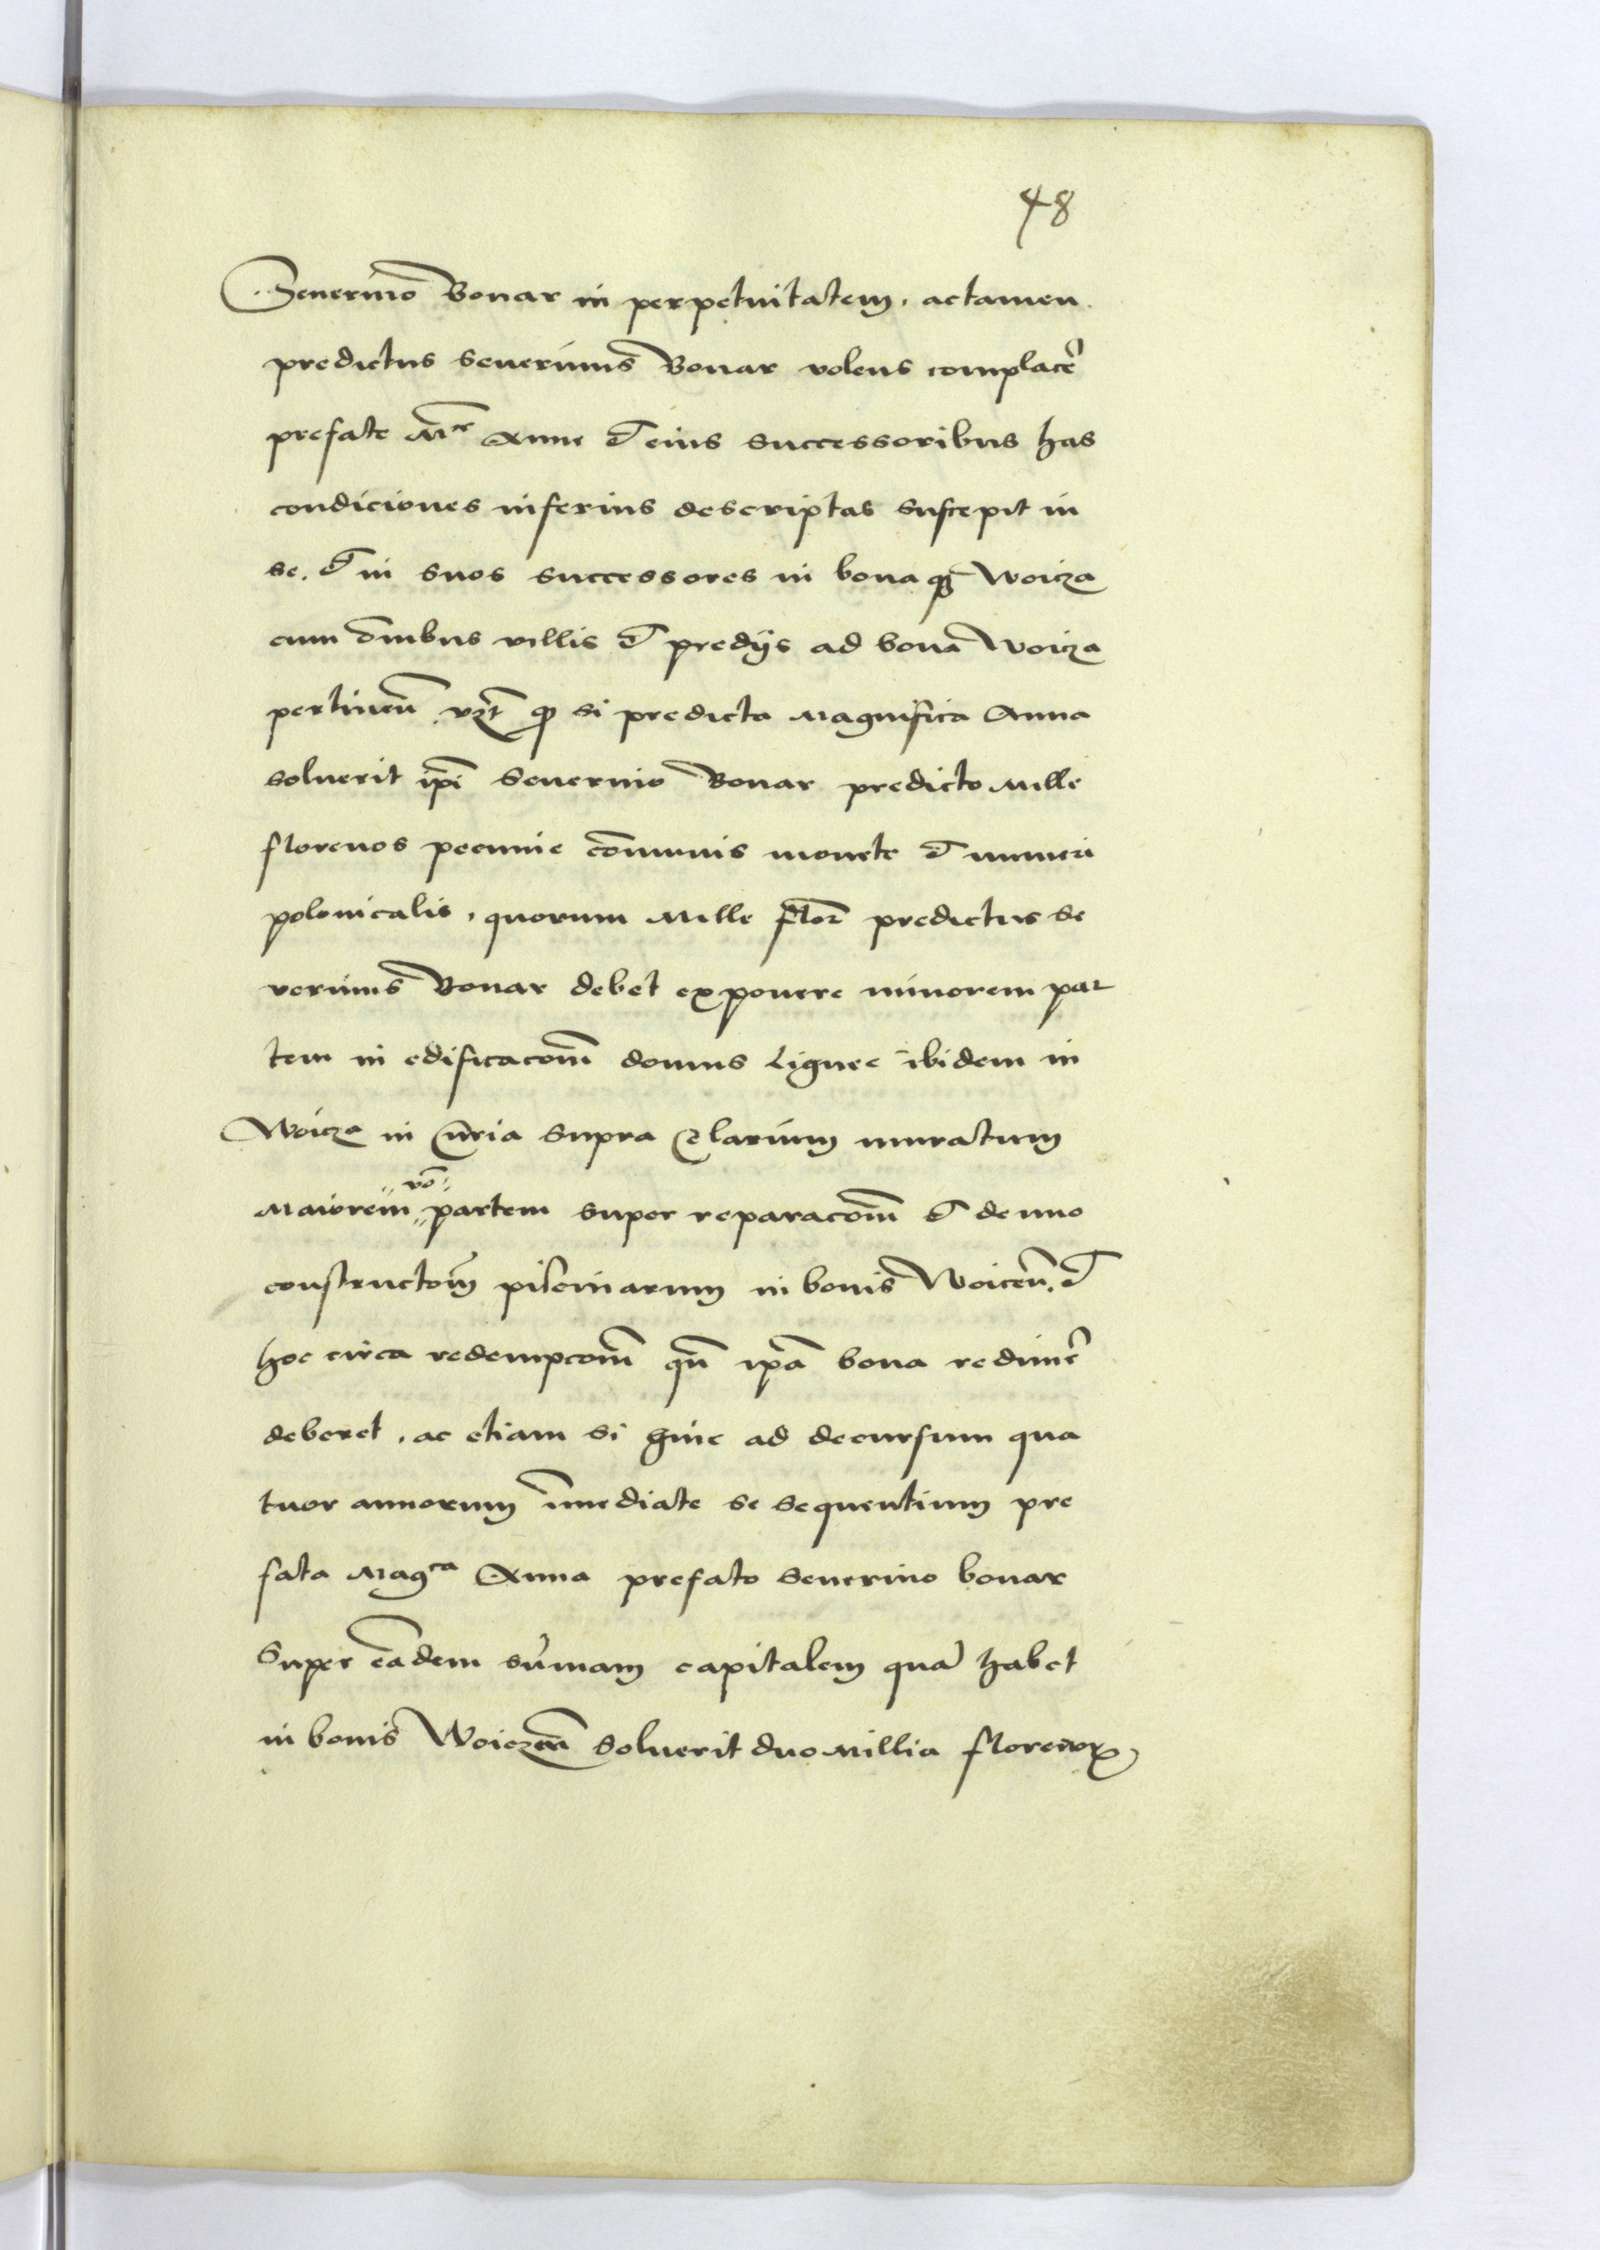 48
Seuerino Bonar in perpetuitatem, actamen
predictus Seuerinus Bonar volens complacer̃
prefate Mce Anne et eius successoribus has
condiciones inferius descriptas suscepit in
se. et in suos successores in bona Woicza
cum om̅ibus villis et predijs ad bona Woicza
pertineñ. vzt̃ qꝫ si predicta Magnifica Anna
soluerit ip̃i Seuerino Bonar predicto Mille
florenos pecunie com̅unis monete et numeri
polonicalis, quorum Mille flor̃ predictus Se
uerinus Bonar debet exponere minorem par
tem in edificacom̃ domus lignee ibidem in
Woicza in Cu̅ria supra Celarium muratum
Maiorem vo̅ partem super reparacom̃ et denuo
constructom̃ piscinarum in bonis Woiceñ. et
hoc circa redempcom̃ qñ ip̃a bona redimer̃
deberet, ac etiam si hinc ad decursum qua
tuor annorum im̅ediate se sequentium pre
fata Magca Anna prefato Seuerino bonar
Super ea̅dem sum̅am capitalem qua̅ habet
in bonis Woiczeñ soluerit duo Millia florenorꝝ